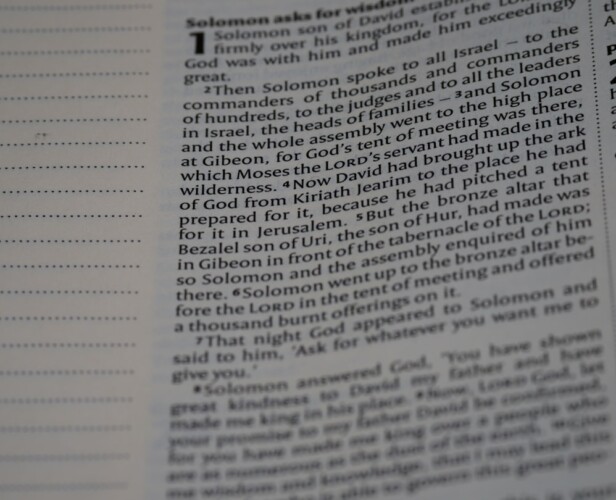 Solomon asks for wisdom
1 Solomon son of David
firmly over his kingdom, for the
God was with him and made him exceedingly
great.
2Then Solomon spoke to all Israel – to the
commanders of thousands and commanders
of hundreds, to the judges and to all the leaders
in Israel, the heads of families – 3and Solomon
and the whole assembly went to the high place
at Gibeon, for God's tent of meeting was there,
which Moses the LORD's servant had made in the
wilderness. 4Now David had brought up the ark
of God from Kiriath Jearim to the place he had
prepared for it, because he had pitched a tent
for it in Jerusalem. 5But the bronze altar that
Bezalel son of Uri, the son of Hur, had made was
in Gibeon in front of the tabernacle of the LORD;
so Solomon and the assembly enquired of him
there. 6Solomon went up to the bronze altar be-
fore the LORD in the tent of meeting and offered
a thousand burnt offerings on it.
7That night God appeared to Solomon and
said to him, 'Ask for whatever you want me to
give you.'
8Solomon answered God, 'You have shown
great kindness to David my father and have
made me king in his place. 9Now, LORD God, let
your promise to my father David be confirmed,
for you have made me king over a people who
are as numerous as the dust of the earth. 10Give
me wisdom and knowledge, that I may lead this